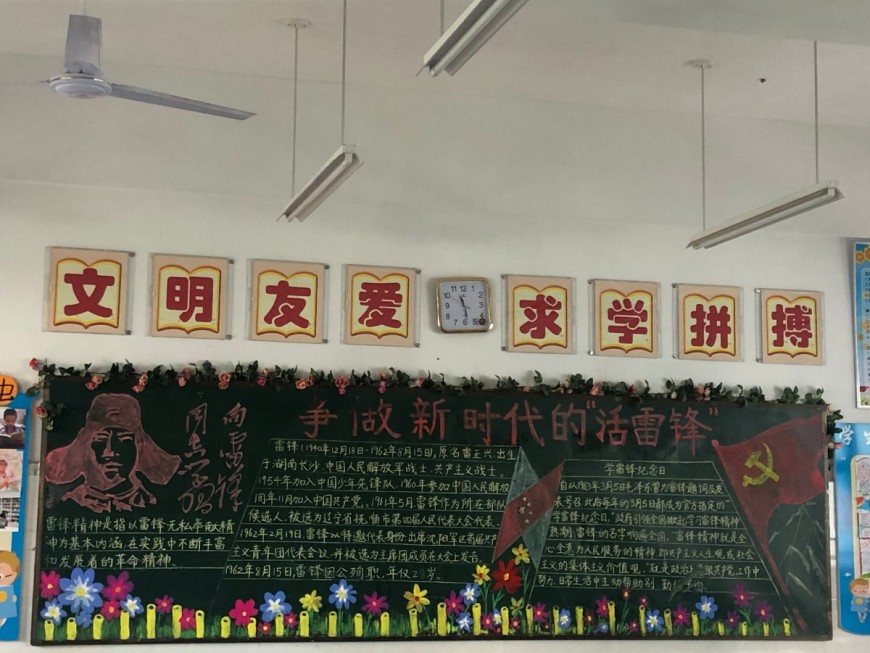 文明友爱
求学拼搏
向雷锋
同志学习
争做新时代的"活雷锋"
雷锋(1940年12月18日-1962年8月15日,原名雷正兴,出生
于湖南长沙,中国人民解放军战士,共产主义战士。
1954年加入中国少年先锋队,1960年参加中国人民解放军
同年11月加入中国共产党,1961年5月雷锋作为所在部队
候选人,被选为辽宁省抚顺市第四届人民代表大会代表,
1962年2月19日,雷锋以特邀代表身份,出席沈阳军区首届共产
主义青年团代表会议,并被选为主席团成员在大会上发言。
1962年8月15日,雷锋因公殉职,年仅2岁。
雷锋精神是指以雷锋无私奉献精
神为基本内涵,在实践中不断丰富
和发展着的革命精神。
学雷锋纪念日
自从1963年3月5日毛泽东为雷锋题词
号召,此后每年的3月5日都成为官方指定的
"学雷锋纪念日",政府引领全国掀起学习雷锋精神
热潮,雷锋的名字响遍全国,雷锋精神就是全
心全意为人民服务的精神,即共产主义人生观,在社会
主义的集体主义价值观,
努力,日常生活中主动帮助别
虫
学生